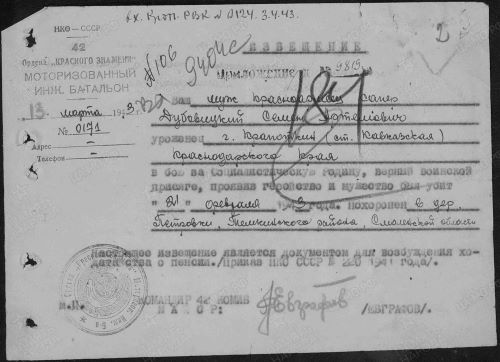 вх. Кроп. РВК № 0124. 3.4.43.
НКО – СССР
42
Ордена „КРАСНОГО ЗНАМЕНИ"
МОТОРИЗОВАННЫЙ
ИНЖ. БАТАЛЬОН
13 марта 1943
№ 0171
Адрес
Телефон
№106
2
ИЗВЕЩЕНИЕ
Приложение №
Ваш муж красноармеец сапер
Дубовицкий Семен
уроженец г. Кропоткин (ст. Кавказская)
Краснодарского края
в бою за Социалистическую родину, верный воинской
присяге, проявив геройство и мужество был убит
" 21 " февраля 1943 года. Похоронен в дер.
Петровки, Темкинского района, Смоленской области
Настоящее извещение является документом для возбуждения хо-
датайства о пенсии./приказ НКО СССР № 220 1941 года/.
КОМАНДИР 42 ОКМИБ
М.П. МАЙОР: Евграфов /ЕВГРАФОВ/.